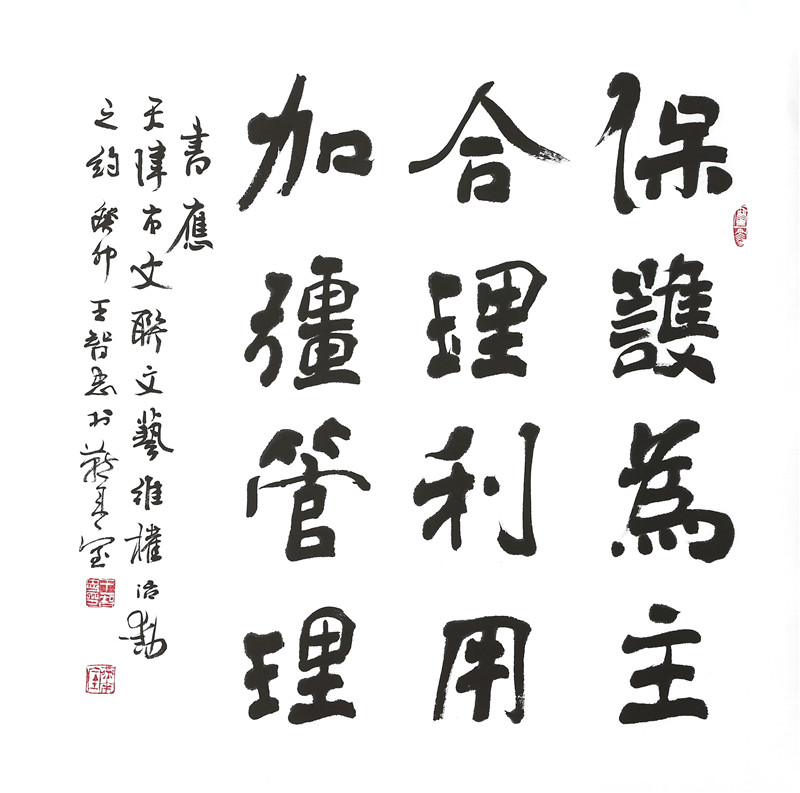 保護為主
合理利用
加彊管理
書應
天津市文聯文藝維權活動
之約 癸卯 王智忠於